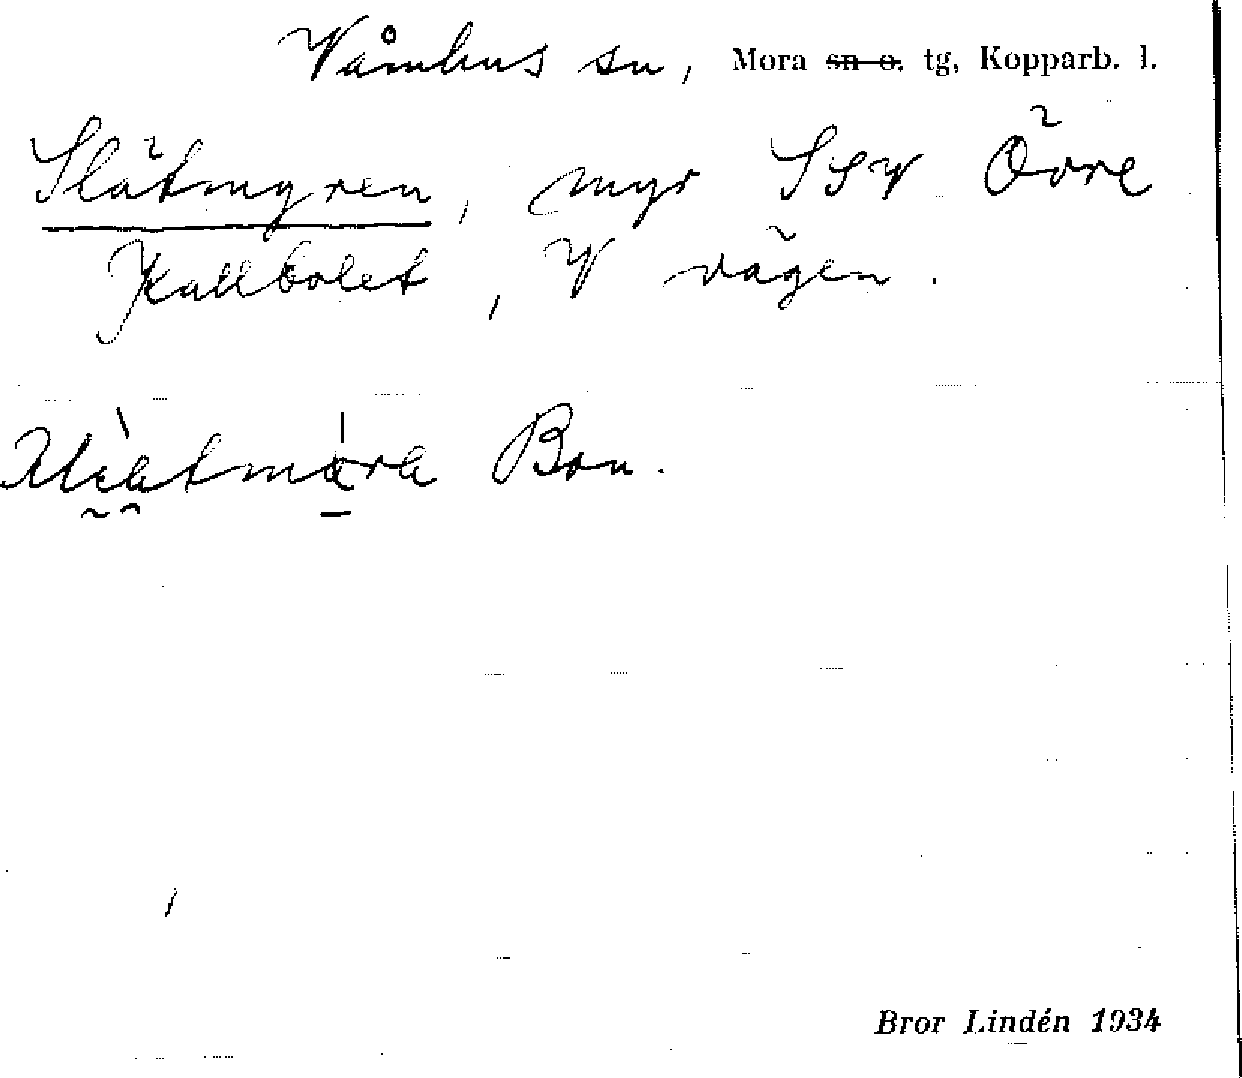 Våmhus sn, Mora sn o. tg, Kopparb. l.
Slåtmyren, myr SSV Övre
Kallbolet, V vägen.
Bon.
Bror Lindén 1934